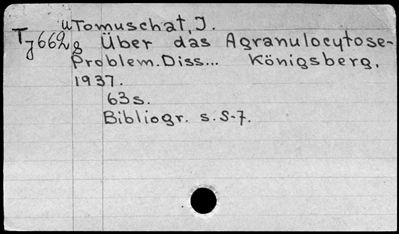 uTomuschat, J.
Tj662g Über das Agranulocytose-
Problem. Diss... Königsberg,
1937.
63s.
Bibliogr. s.S-7.